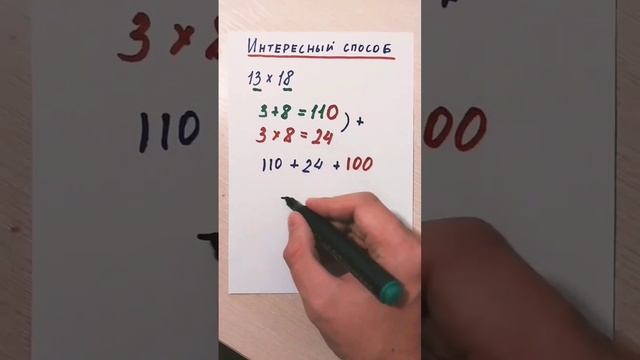 Интересный способ
13 × 18
3 + 8 = 110
3 × 8 = 24
) +
110 + 24 + 100